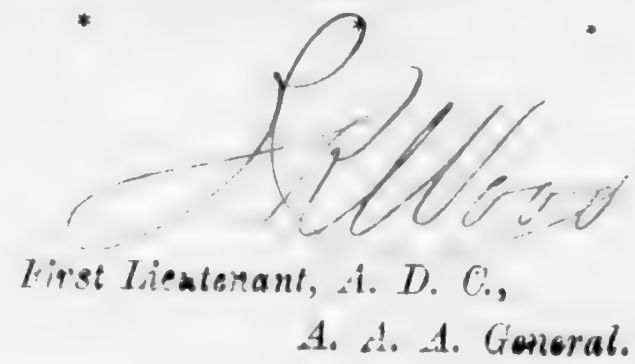 * * *
Wood
First Lieutenant, A. D. C.,
A. A. A. General.